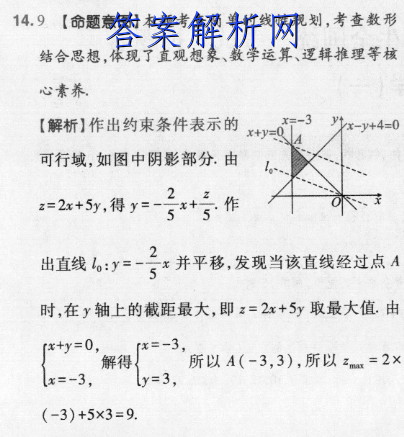 14.9 【命题意图】本题考查简单的线性规划,考查数形
答案解析网
结合思想,体现了直观想象、数学运算、逻辑推理等核
心素养.
【解析】作出约束条件表示的
可行域,如图中阴影部分.由
z=2x+5y,得 y=-2/5x+z/5.作
x=-3
y
x-y+4=0
x+y=0
A
l₀
O
x
出直线 l₀:y=-2/5x 并平移,发现当该直线经过点 A
时,在 y 轴上的截距最大,即 z=2x+5y 取最大值.由
{x+y=0, x=-3, 解得{x=-3, y=3, 所以 A(-3,3),所以 zmax=2×
(-3)+5×3=9.